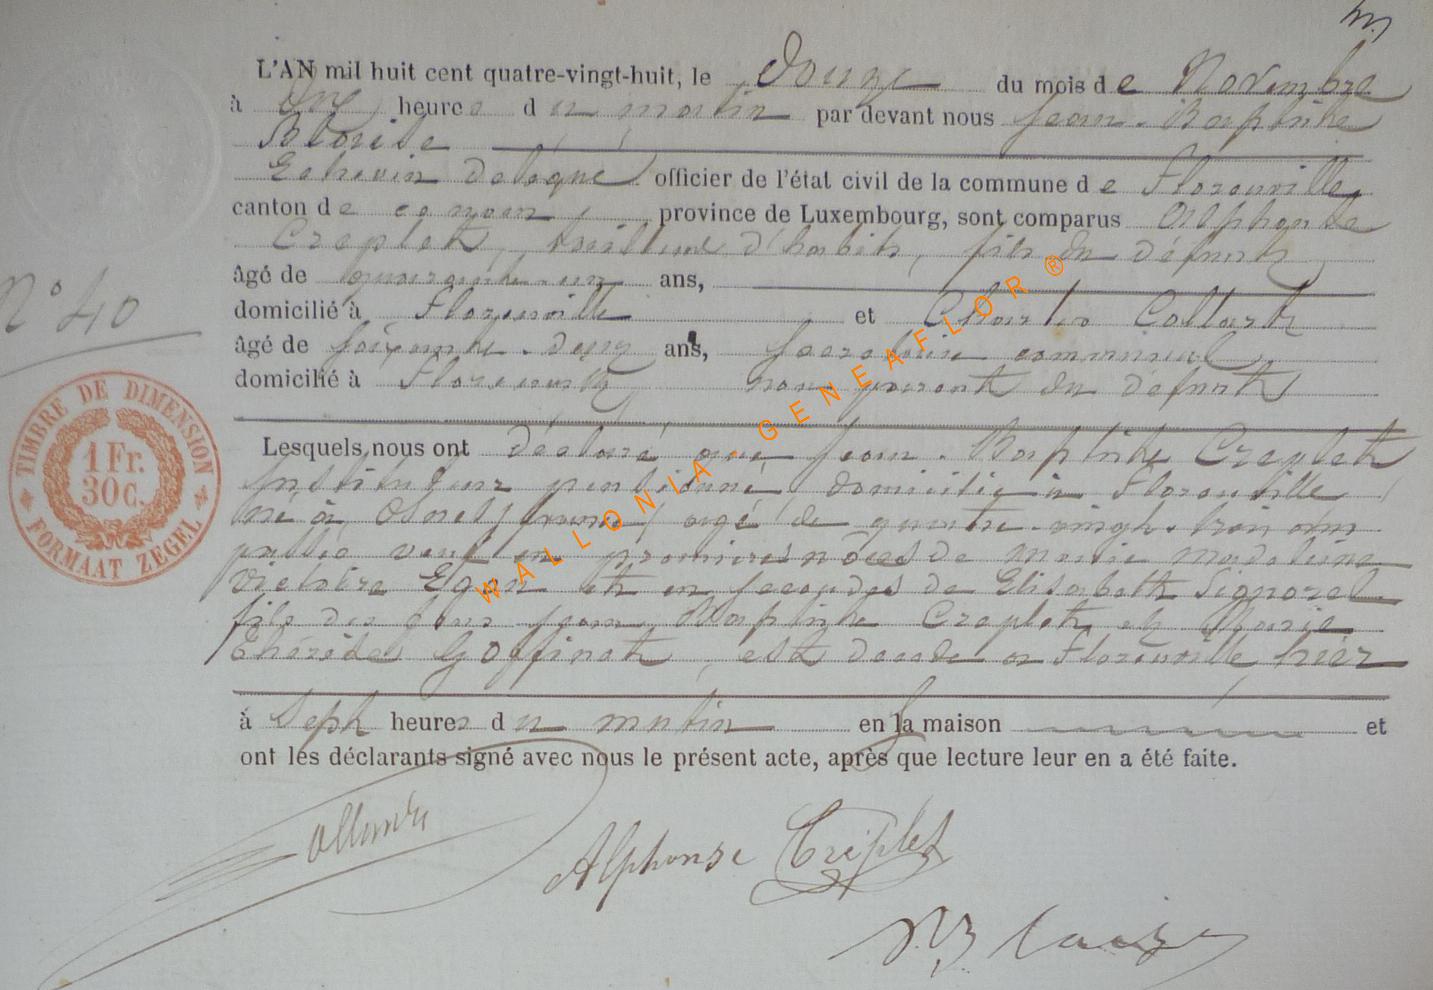 L'AN mil huit cent quatre-vingt-huit, le douze du mois de Novembre
à onze heures du matin par devant nous Jean-Baptiste
Blaise
Echevin délégué officier de l'état civil de la commune de Florenville,
canton de ce nom, province de Luxembourg, sont comparus Alphonse
Creplet, tailleur d'habits, fils du défunt
âgé de quarante-un ans,
domicilié à Florenville et Charles Collart
âgé de soixante-deux ans, secrétaire communal,
domicilié à Florenville non parent du défunt
N° 40
TIMBRE DE DIMENSION
1 Fr.
30c.
FORMAAT ZEGEL
Lesquels nous ont déclaré que Jean-Baptiste Creplet
Instituteur pensionné, domicilié à Florenville
né à Osnes (france) âgé de quatre-vingt-trois ans
veuf en premières nôces de Marie Madeleine
Victoire et en secondes de Elisabeth Signorel
fils de feus Jean Baptiste Creplet et Marie
Thérèse Goffinet, est décédé à Florenville hier
à Sept heures du matin en la maison et
ont les déclarants signé avec nous le présent acte, après que lecture leur en a été faite.
Alphonse Créplet
WALLONIA-GENEAFLOR ®